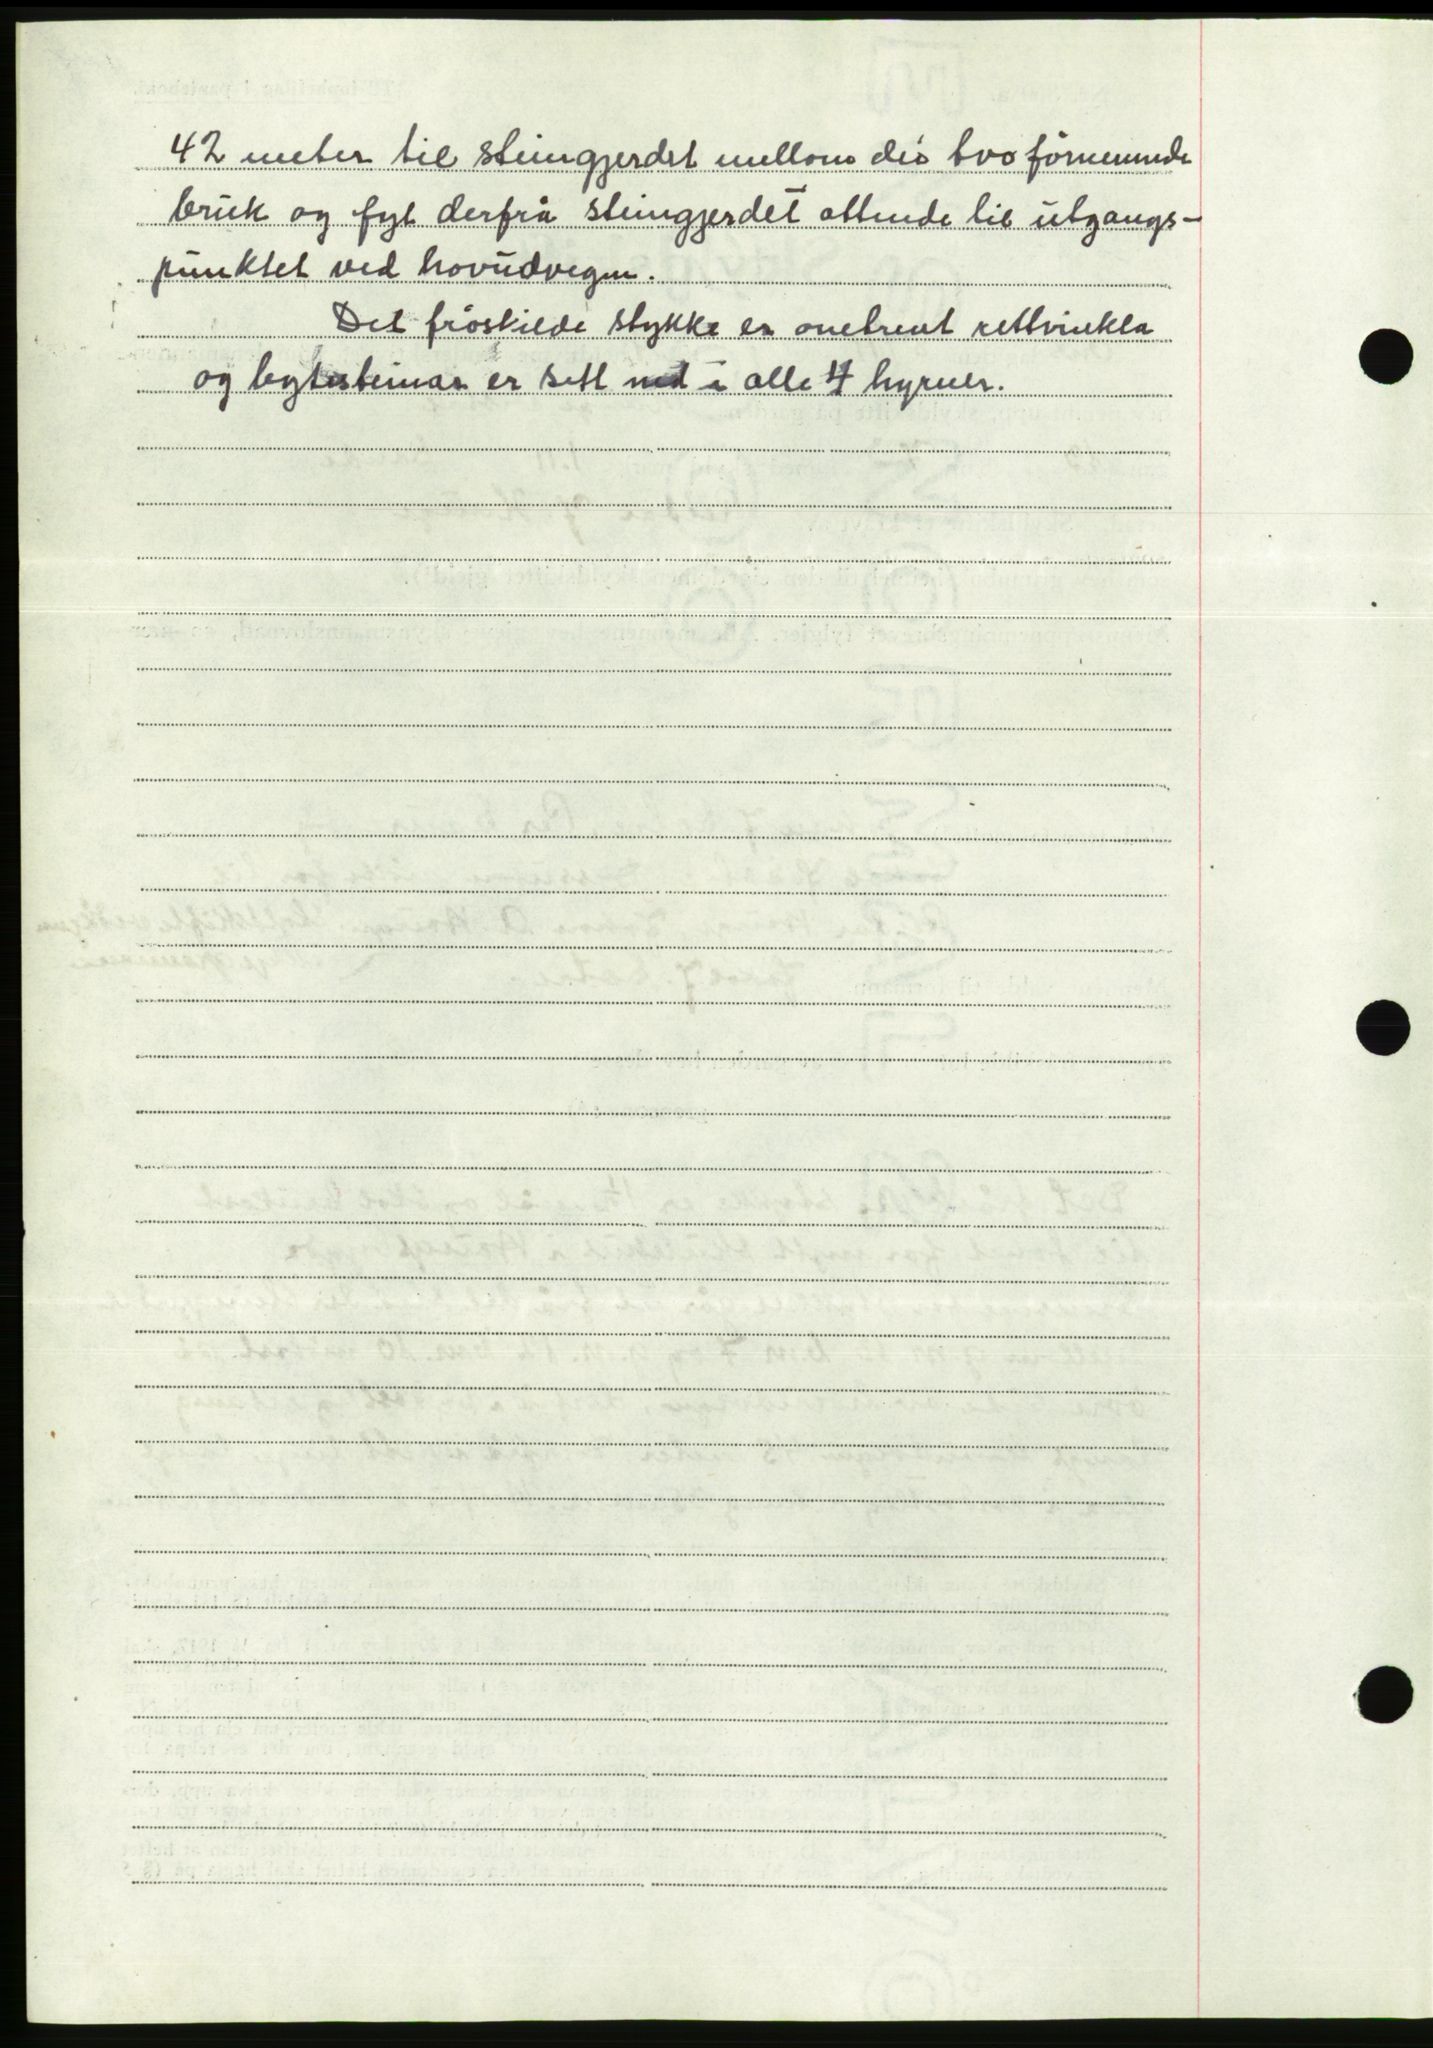 42 meter til steingjerdet mellom dei tvo fornemnde
bruk og fyl derfrå steingjerdet attende til utgangs-
punktet ved hovudvegen.
Det fråskilde stykke er omtrent rettvinkla
og bytesteinar er sett ned i alle 4 hyrner.